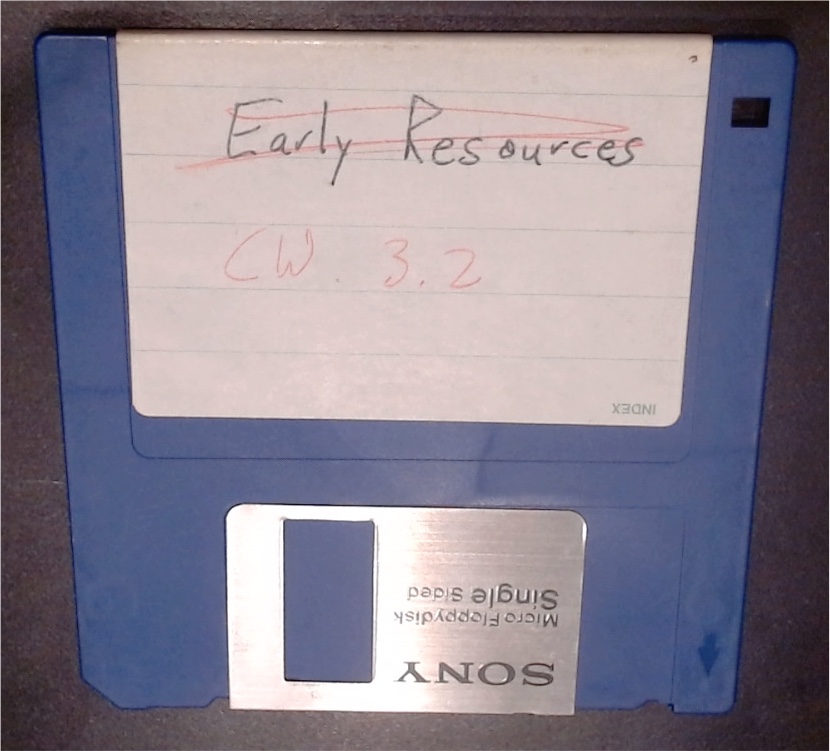 Early Resources
CW. 3.2
INDEX
SONY
Micro Floppydisk
Single Sided